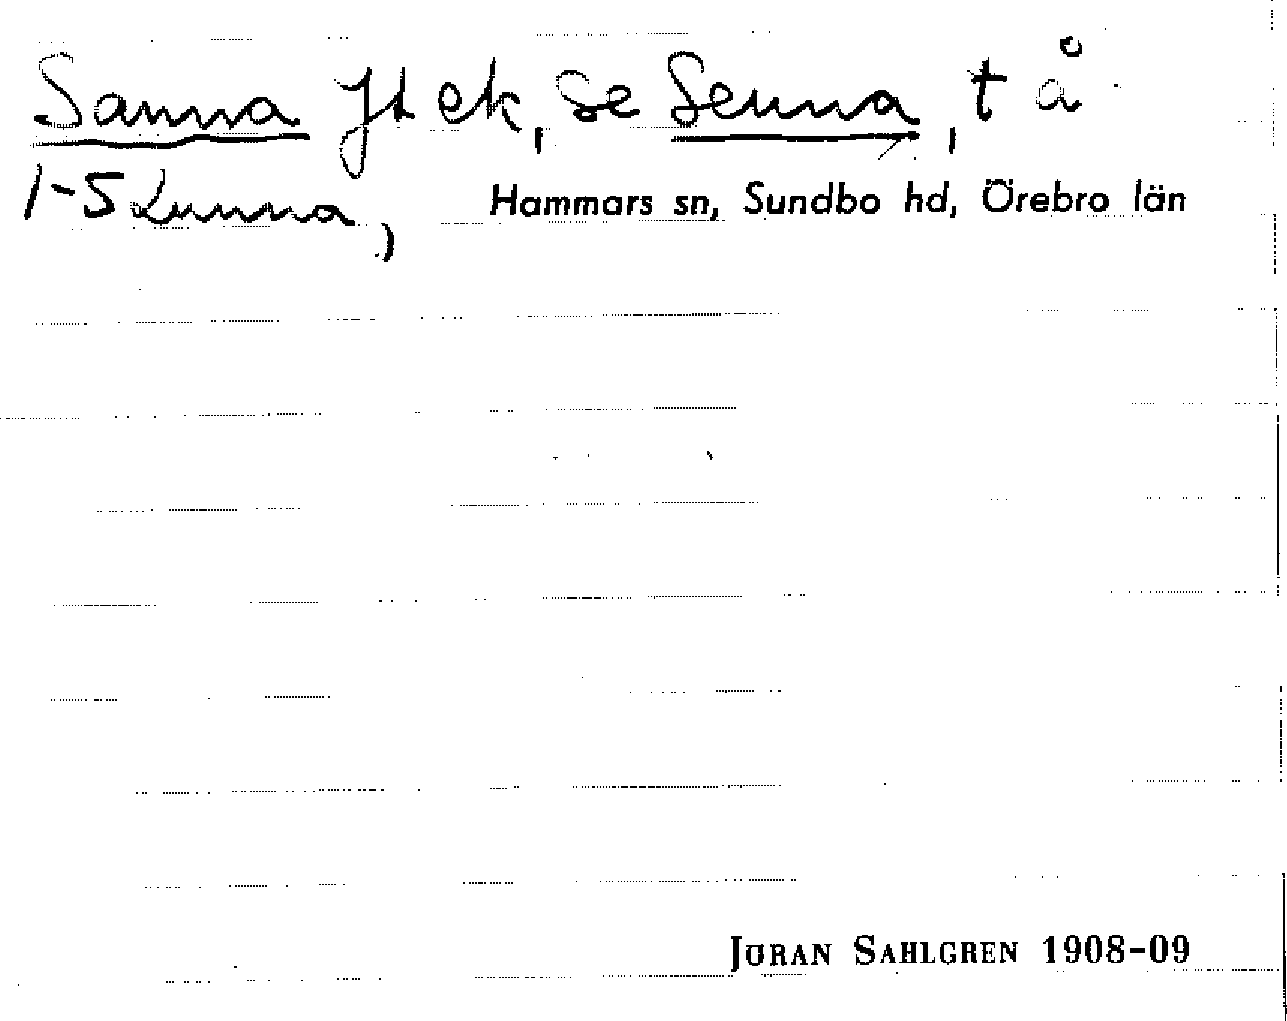 Sanna Jt ek, se Senna, t å
1-5 Kunna,
Hammars sn, Sundbo hd, Örebro län
JÖRAN SAHLGREN 1908-09